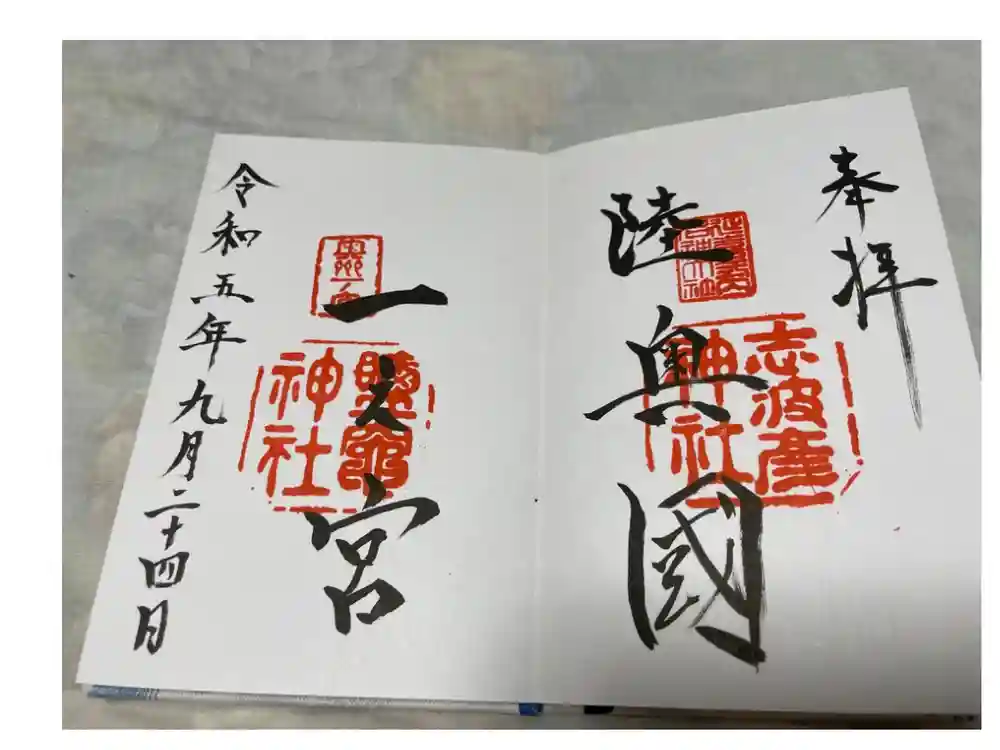 奉拝
陸奥國
志波彦
神社
一之宮
奥州一宮
鹽竈
神社
令和五年九月二十四日